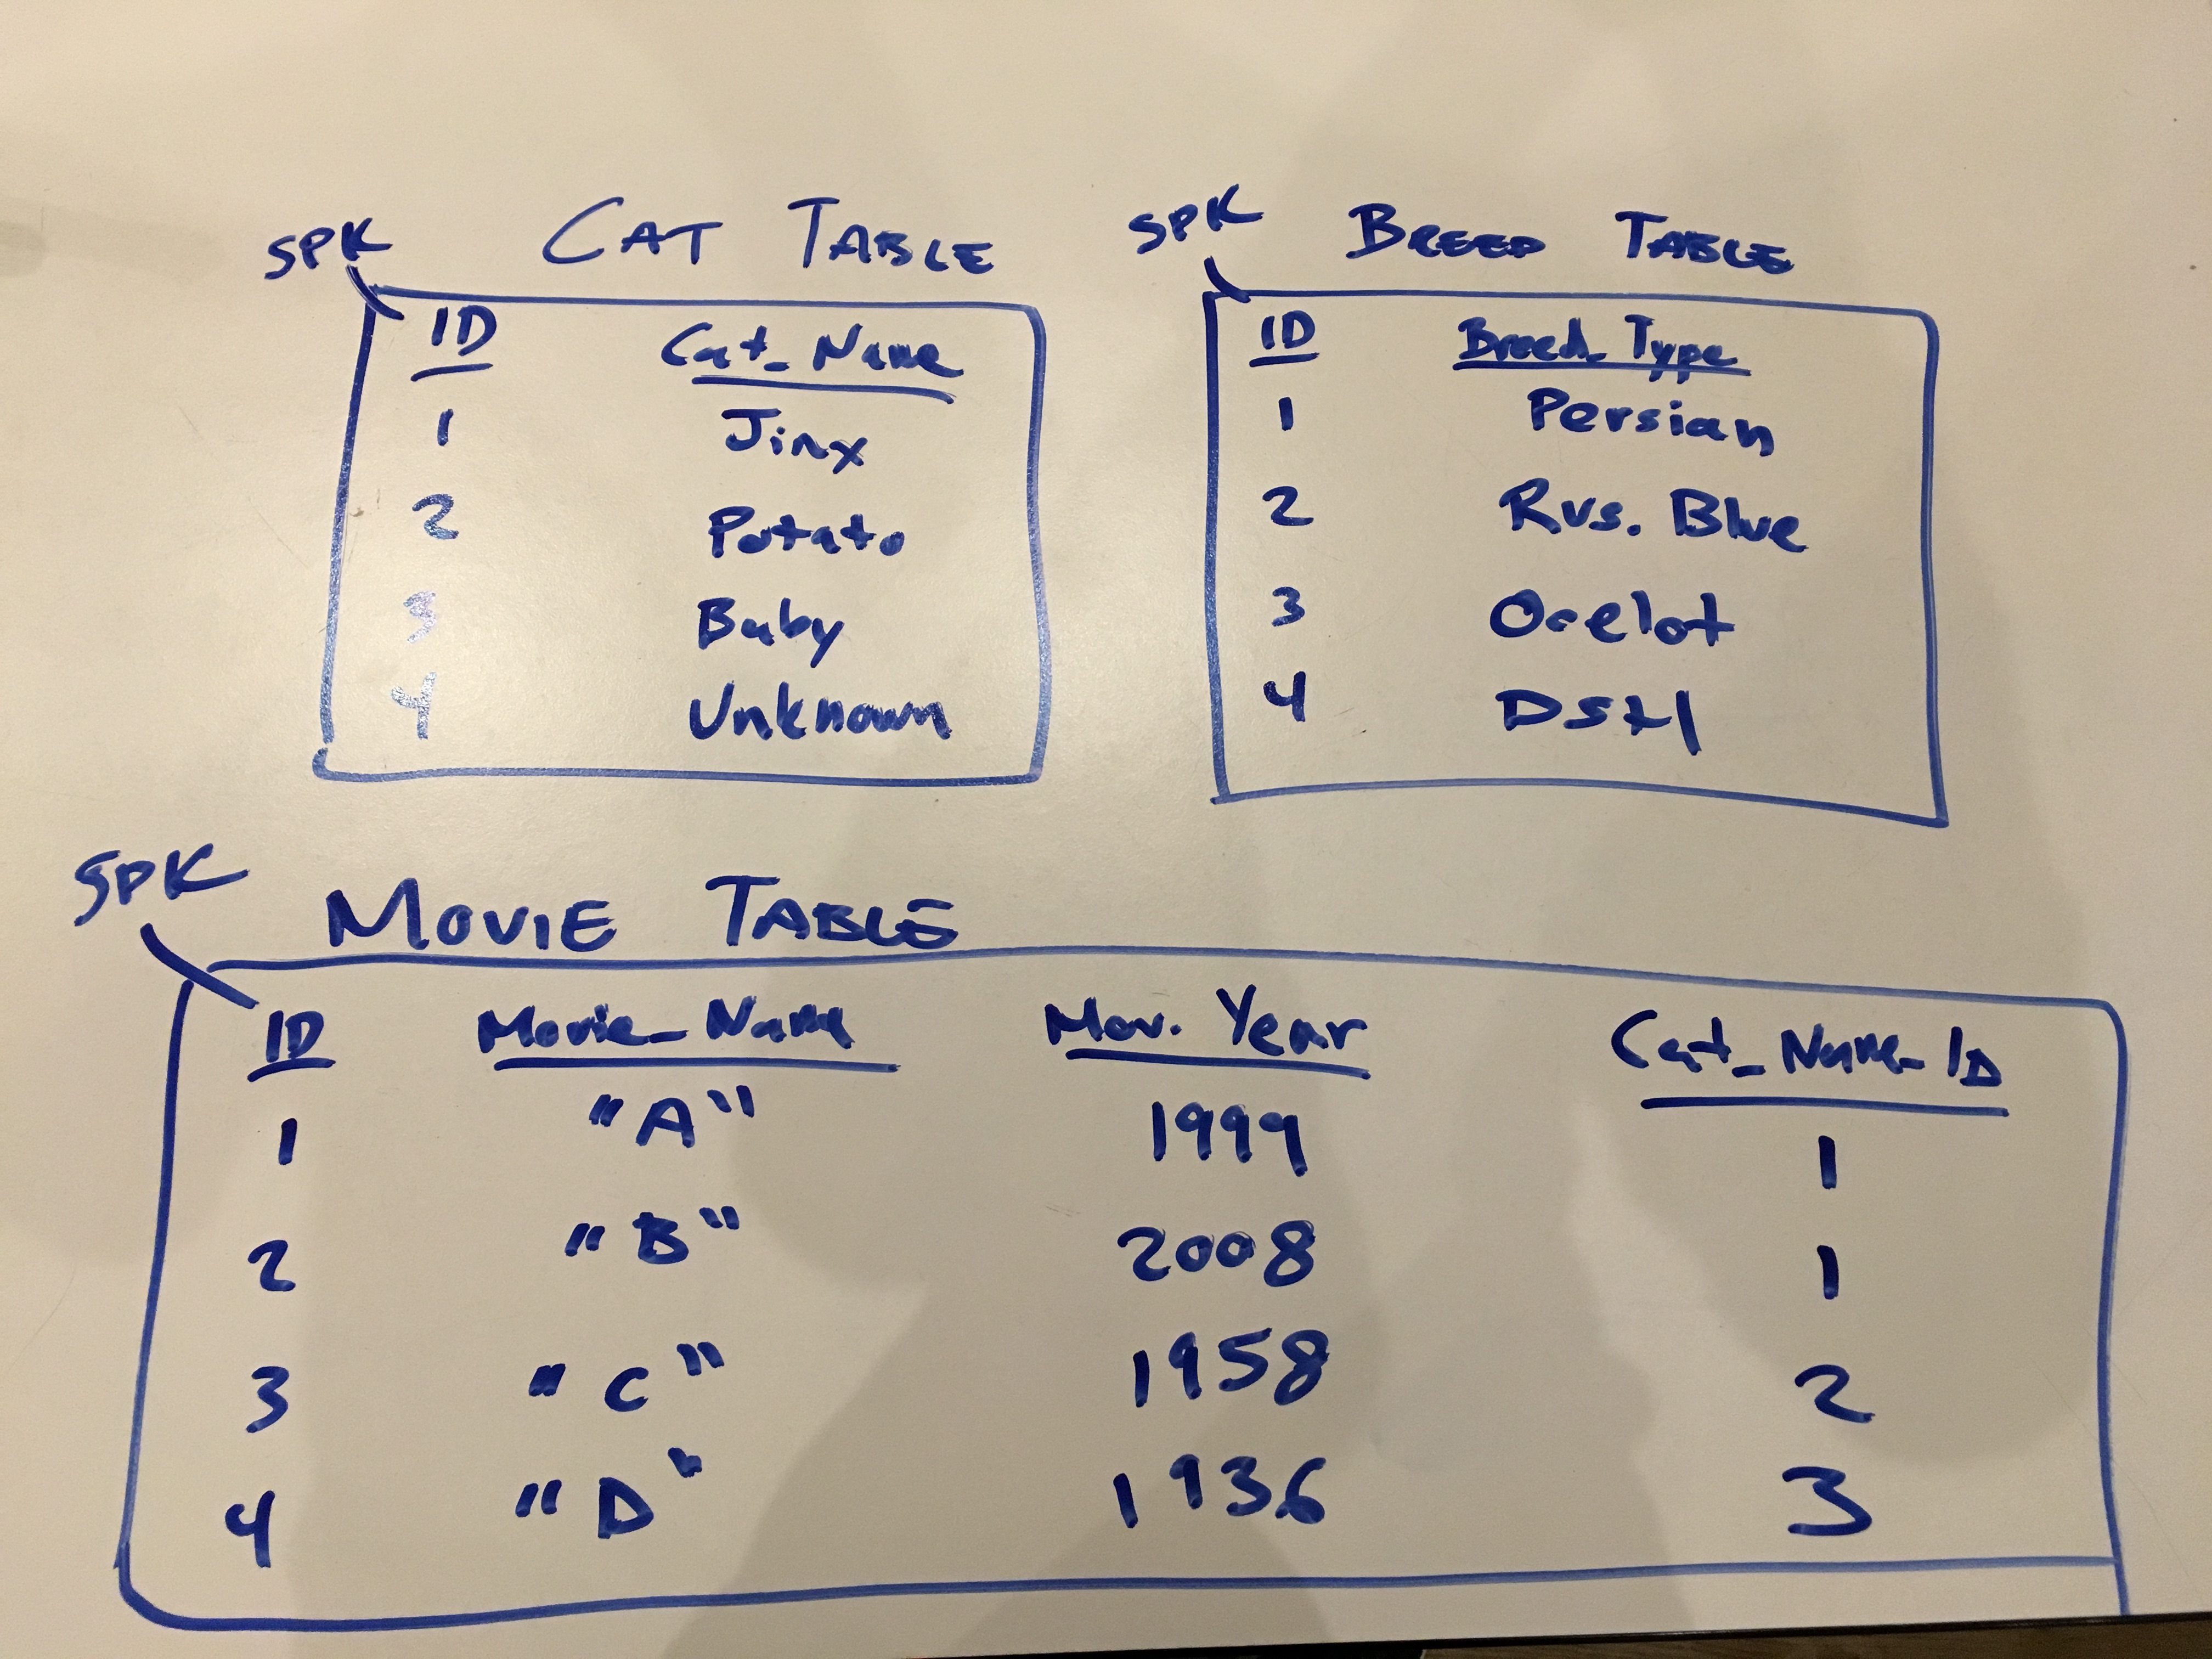 SPK CAT TABLE
ID Cat_Name
1 Jinx
2 Potato
3 Baby
4 Unknown
SPK BREED TABLE
ID Breed_Type
1 Persian
2 Rus. Blue
3 Ocelot
4 DSH
SPK MOVIE TABLE
ID Movie_Name Mov. Year Cat_Name_ID
1 "A" 1999 1
2 "B" 2008 1
3 "C" 1958 2
4 "D" 1936 3